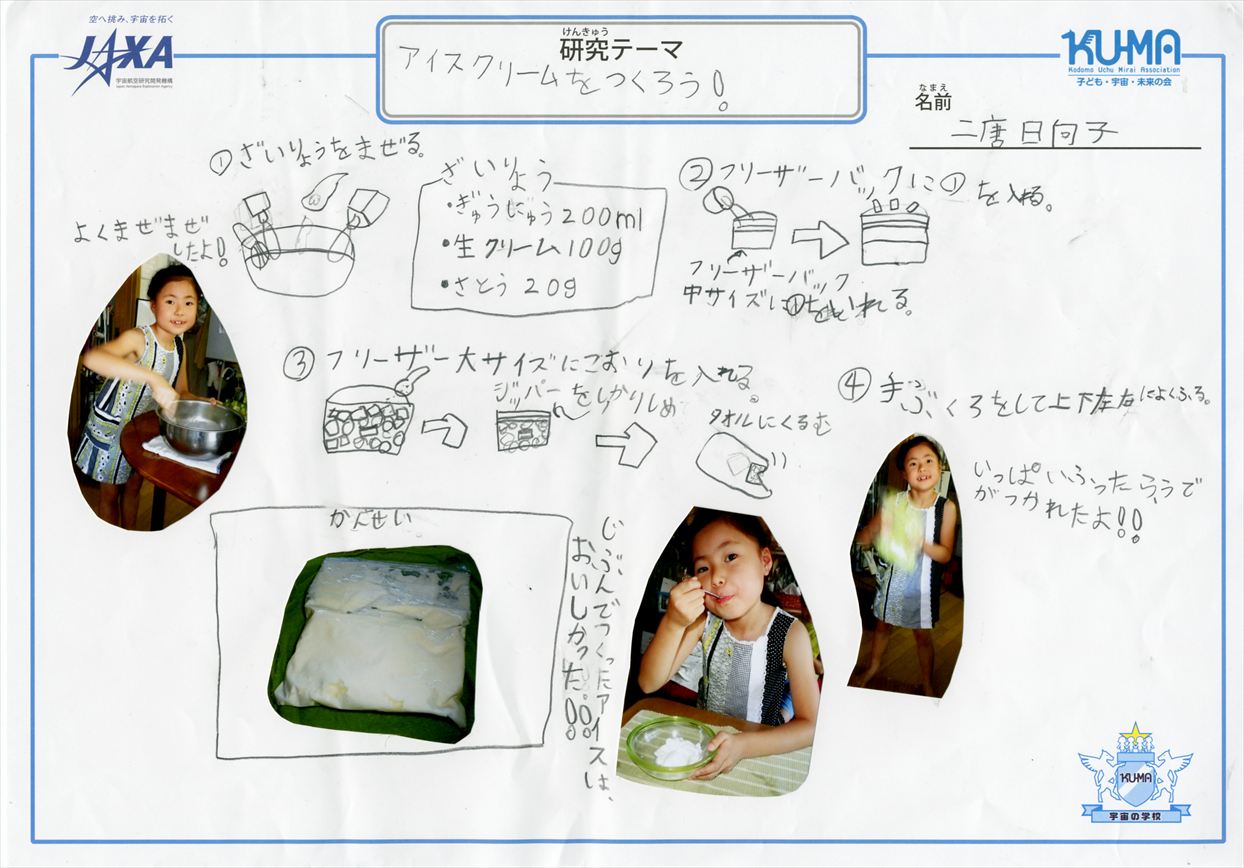 空へ挑み、宇宙を拓く
JAXA
宇宙航空研究開発機構
Japan Aerospace Exploration Agency
けんきゅう
研究テーマ
アイスクリームをつくろう!
KU-MA
Kodomo Uchu Mirai Association
子ども・宇宙・未来の会
なまえ
名前
二唐日向子
①ざいりょうをまぜる。
よくまぜまぜ
したよ!
ざいりょう
・ぎゅうにゅう200ml
・生クリーム100g
・さとう20g
②フリーザーバックに①を入れる。
フリーザーバック
中サイズに①をいれる。
③フリーザー大サイズにこおりを入れる。
ジッパーをしかりしめ
タオルにくるむ
④手ぶくろをして上下左右によくふる。
いっぱいふったらうで
がつかれたよ!!
かんせい
じぶんでつくったアイスは、
おいしかった。!!
KU-MA
宇宙の学校